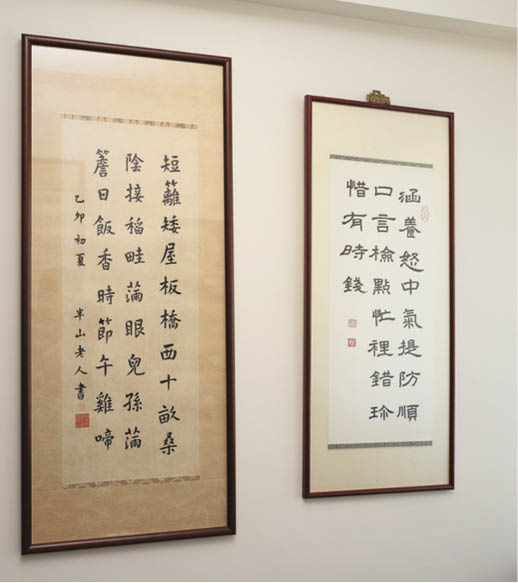 涵養怒中氣提防順
口言檢點忙裡錯珍
惜有時錢
短籬矮屋板橋西十畝桑
陰接稻畦滿眼兒孫滿
簷日飯香時節午雞啼
乙卯初夏 半山老人書